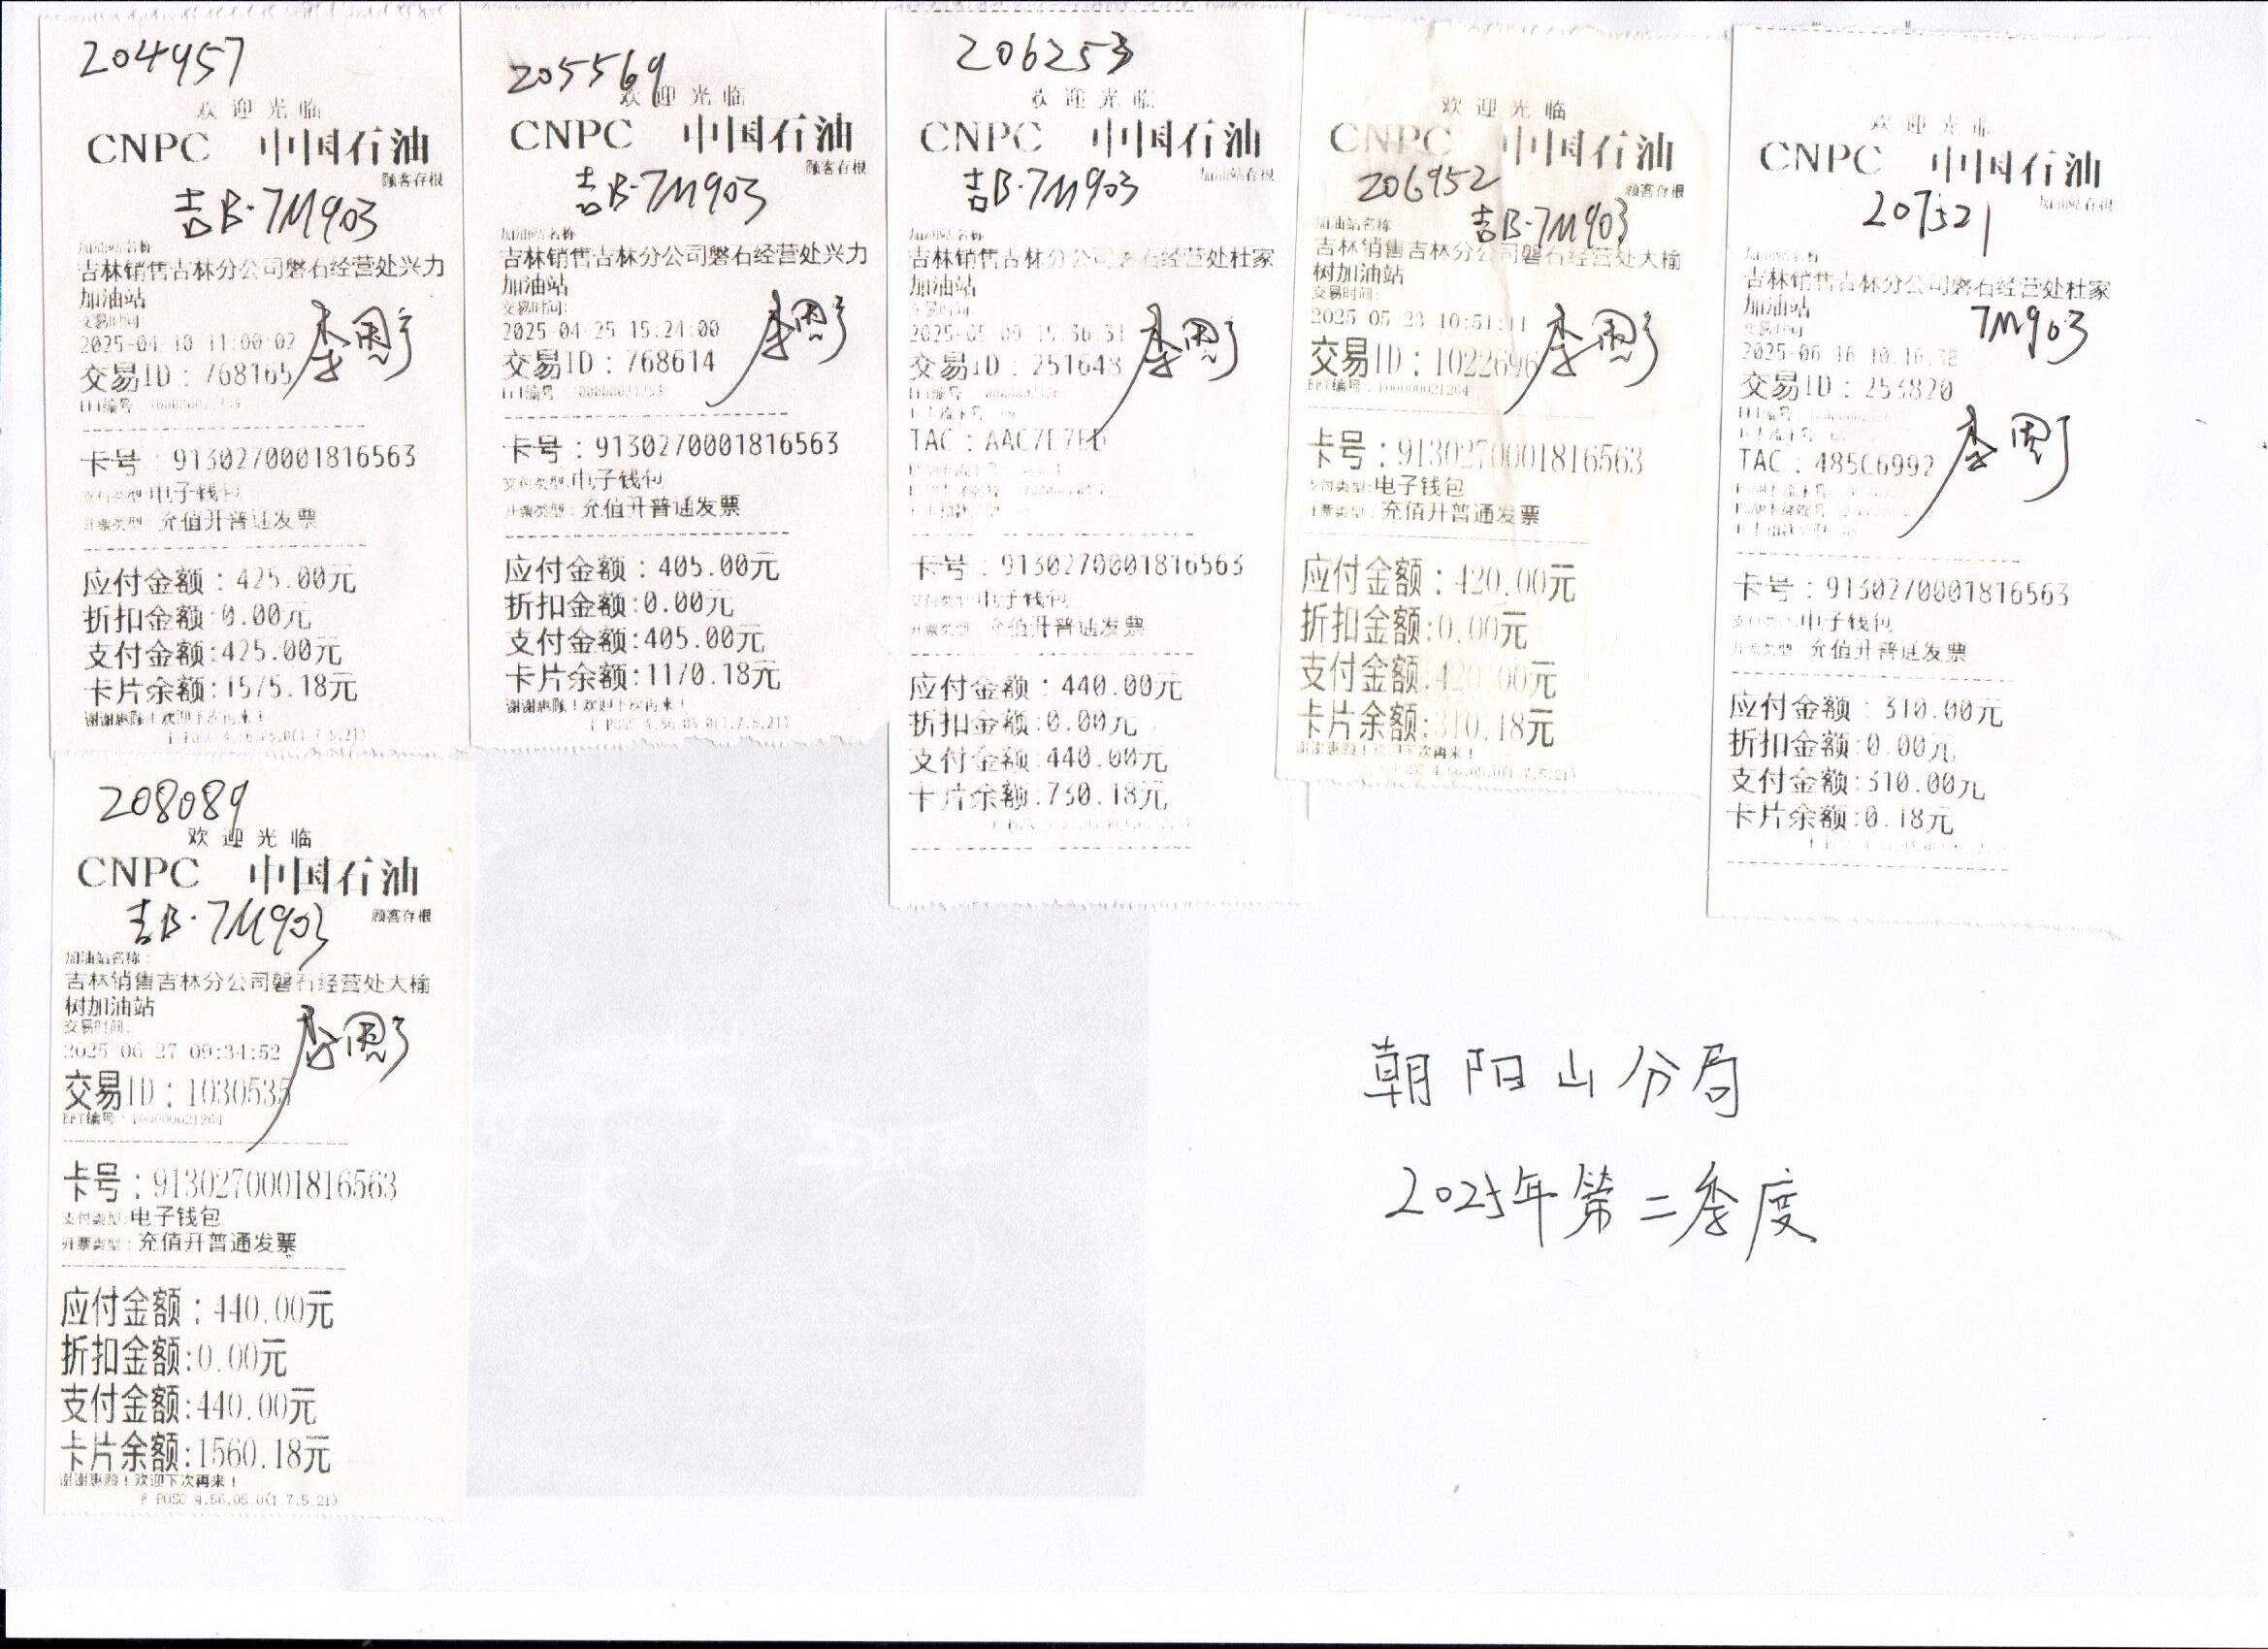 204957
欢迎光临
CNPC 中国石油
顾客存根
吉B·7M903
加油站名称
吉林销售吉林分公司磐石经营处兴力
加油站
交易时间
2025-04-10 11:00:02
交易ID：768165
EPT编号
卡号：9130270001816563
支付类型:电子钱包
开票类型：充值开普通发票
应付金额：425.00元
折扣金额:0.00元
支付金额:425.00元
卡片余额:1575.18元
谢谢惠顾！欢迎下次再来！
205569
欢迎光临
CNPC 中国石油
顾客存根
吉B·7M903
加油站名称
吉林销售吉林分公司磐石经营处兴力
加油站
交易时间:
2025-04-25 15:24:00
交易ID：768614
卡号：9130270001816563
支付类型:电子钱包
开票类型：充值开普通发票
应付金额：405.00元
折扣金额:0.00元
支付金额:405.00元
卡片余额:1170.18元
谢谢惠顾！欢迎下次再来！
206253
欢迎光临
CNPC 中国石油
加油站存根
吉B·7M903
加油站名称
吉林销售吉林分公司磐石经营处杜家
加油站
交易时间
2025-05-09 15:36:31
交易ID：251648
TAC：AAC7E7ED
卡号：9130270001816563
支付类型:电子钱包
开票类型：充值开普通发票
应付金额：440.00元
折扣金额:0.00元
支付金额:440.00元
卡片余额:730.18元
欢迎光临
CNPC 中国石油
206952
顾客存根
吉B·7M903
加油站名称
吉林销售吉林分公司磐石经营处大榆
树加油站
交易时间:
2025-05-23 10:51:11
交易ID：1022696
EPT编号：100000021264
卡号：9130270001816563
支付类型:电子钱包
开票类型：充值开普通发票
应付金额：420.00元
折扣金额:0.00元
支付金额:420.00元
卡片余额:310.18元
谢谢惠顾！欢迎下次再来！
欢迎光临
CNPC 中国石油
207521
加油站存根
加油站名称
吉林销售吉林分公司磐石经营处杜家
加油站
7M903
交易时间
2025-06-16 10:16:38
交易ID：253820
TAC：485C6992
卡号：9130270001816563
支付类型:电子钱包
开票类型：充值开普通发票
应付金额：310.00元
折扣金额:0.00元
支付金额:310.00元
卡片余额:0.18元
208089
欢迎光临
CNPC 中国石油
顾客存根
吉B·7M903
加油站名称：
吉林销售吉林分公司磐石经营处大榆
树加油站
交易时间:
2025-06-27 09:34:52
交易ID：1030535
EPT编号：100000021264
卡号：9130270001816563
支付类型:电子钱包
开票类型：充值开普通发票
应付金额：440.00元
折扣金额:0.00元
支付金额:440.00元
卡片余额:1560.18元
谢谢惠顾！欢迎下次再来！
POSC 4.56.05.0(1.7.5.21)
朝阳山分局
2025年第二季度